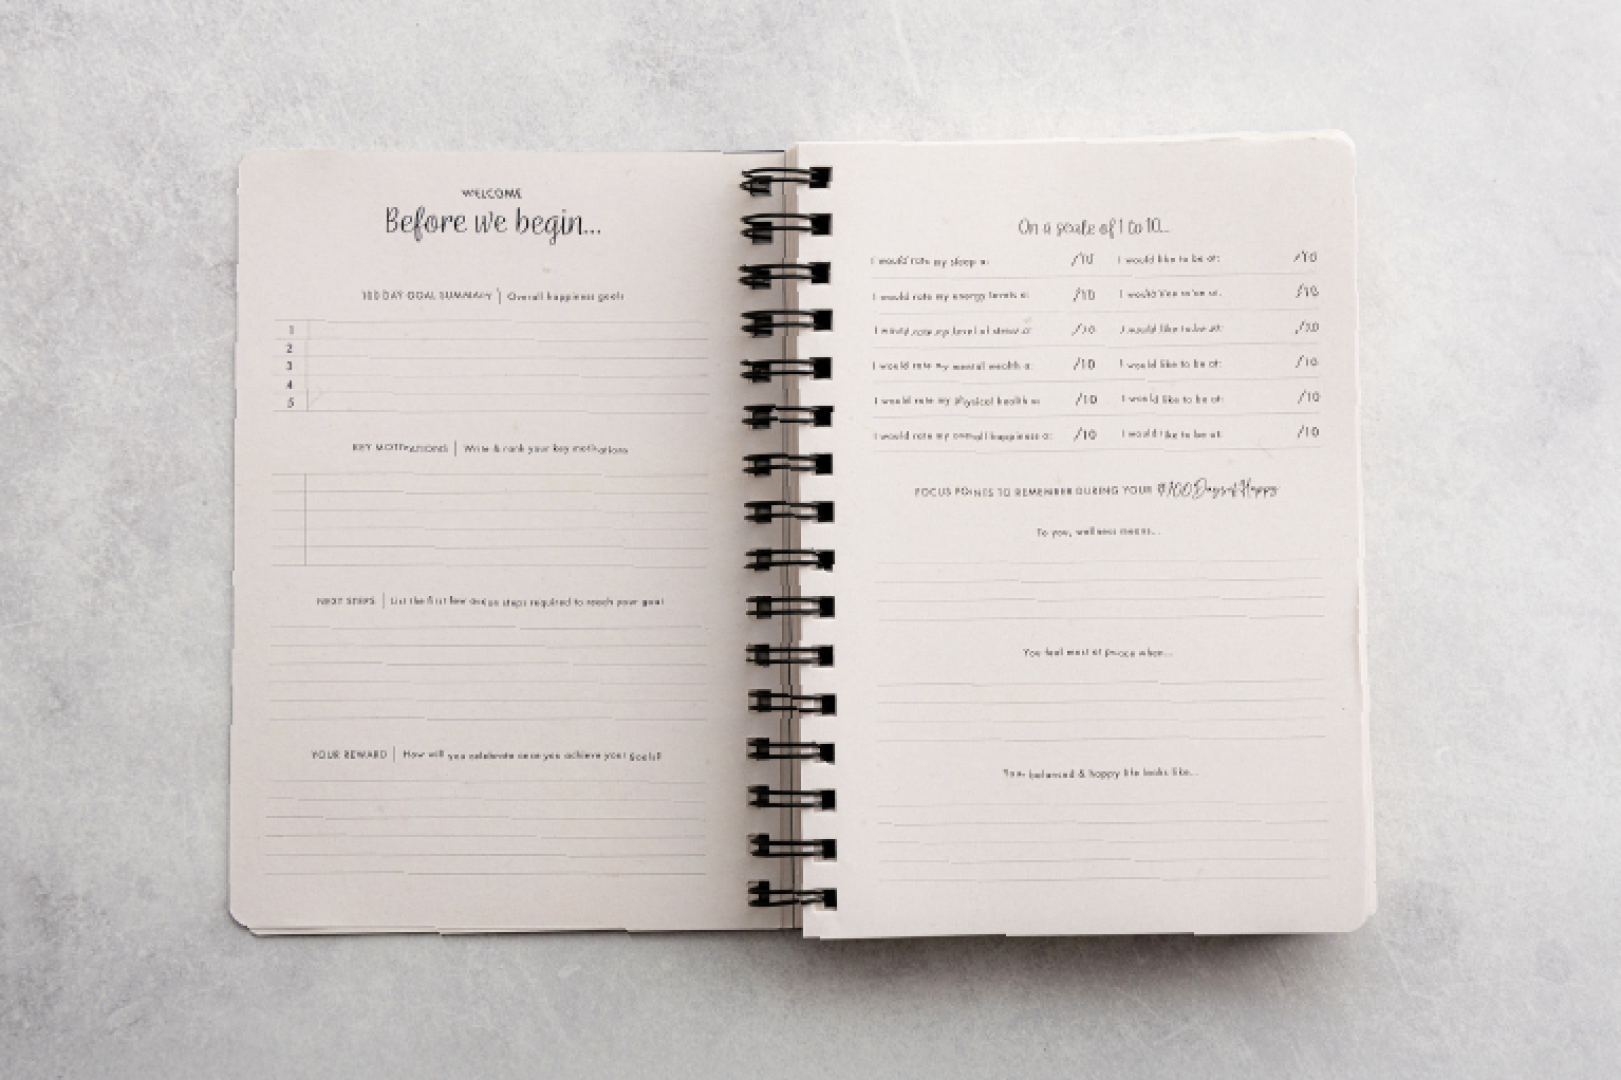 WELCOME
Before we begin...
100 DAY GOAL SUMMARY | Overall happiness goals
1
2
3
4
5
KEY MOTIVATIONS | Write & rank your key motivations
NEXT STEPS | List the first few action steps required to reach your goal
YOUR REWARD | How will you celebrate once you achieve your goals?
On a scale of 1 to 10...
I would rate my sleep at: /10 I would like to be at: /10
I would rate my energy levels at: /10 I would like to be at: /10
I would rate my level of stress at: /10 I would like to be at: /10
I would rate my mental health at: /10 I would like to be at: /10
I would rate my physical health at: /10 I would like to be at: /10
I would rate my overall happiness at: /10 I would like to be at: /10
FOCUS POINTS TO REMEMBER DURING YOUR #100DaysofHappy
To you, wellness means...
You feel most at peace when...
Your balanced & happy life looks like...